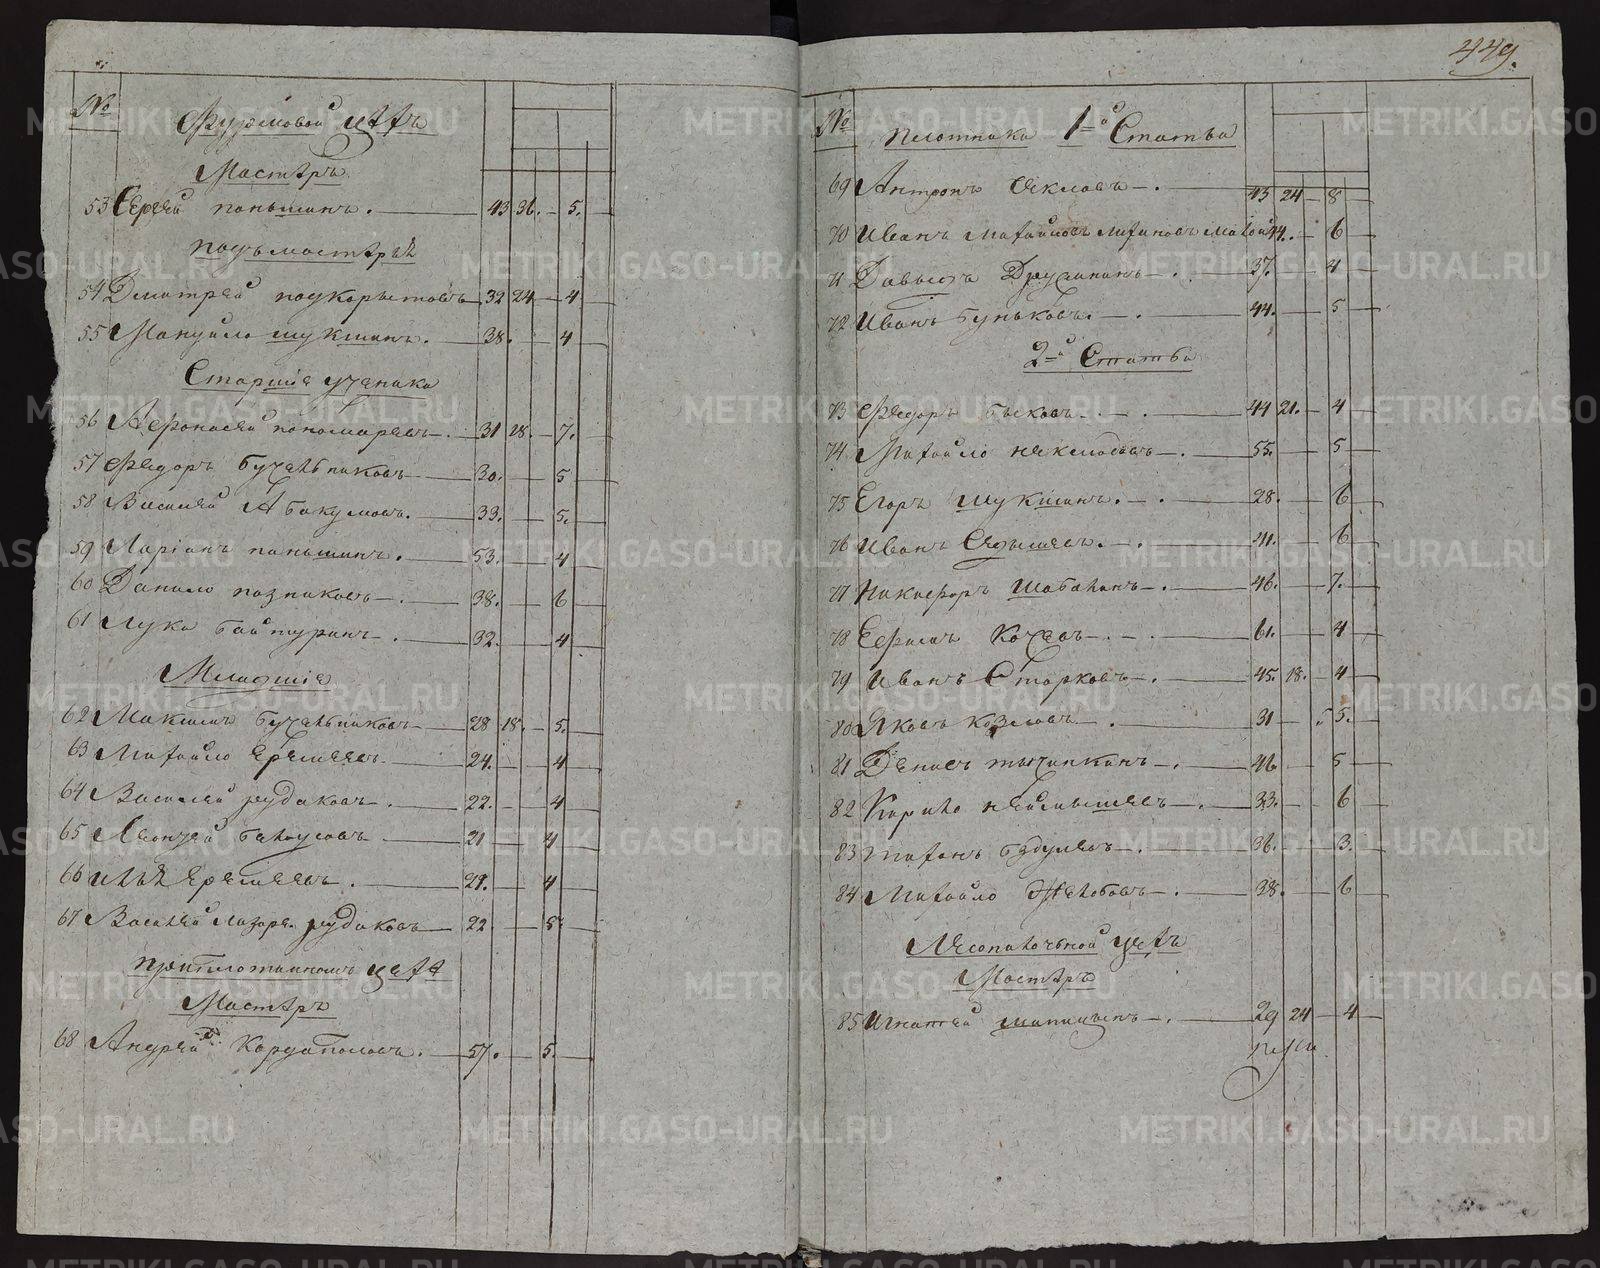 №
Фурмовой цехъ
Мастеръ
53 Сергей паньшинъ. 43 36. 5.
подъмастерья
54 Дмитрей подкорытовъ 32 24 4
55 Мануйло шукшинъ. 38. 4
Старшіе ученики
56 Афонасей пономаревъ 31 28. 7.
57 Федоръ бучельниковъ 30. 5
58 Василей Абакумовъ. 33. 5.
59 Ларіонъ паньшинъ. 53. 4
60 Данило позниковъ 38. 6
61 Лука байтуринъ 32. 4
Младшіе
62 Максимъ бучельниковъ 28 18. 5.
63 Михайло Еремеевъ 24. 4
64 Василей рудаковъ 22. 4
65 Леонтей белоусовъ 21 4
66 илья Еремеевъ. 29. 4
67 Василей Лазаре. рудаковъ 22. 5.
приплотинномъ цехе
Мастеръ
68 Андрей Кардаполовъ. 57. 5.
449.
№
плотники 1й Статьи
69 Антропъ 43 24 8
70 Иванъ Михайловъ 44. 6
71 Давыдъ Дружининъ 37. 4
72 Иванъ буньковъ. 44. 5
2й Статьи
73 Федоръ быковъ 44 21. 4
74 Михайло неклюдовъ 55. 5
75 Егоръ шукшинъ. 28. 6
76 Иванъ 41. 6
77 Никифоръ шабалинъ 46. 7.
78 Ефимъ Кочевъ 61. 4
79 Иванъ Старковъ 45. 18. 4
80 Яковъ козловъ 31 5.
81 Денисъ тычинкинъ 46 5
82 Кирило неймышевъ 33. 6
83 Тиханъ 36. 3.
84 Михайло Желобовъ 38. 6
Лесопилочьной цехъ
Мастеръ
85 Игнатей маминынъ 29 24 4